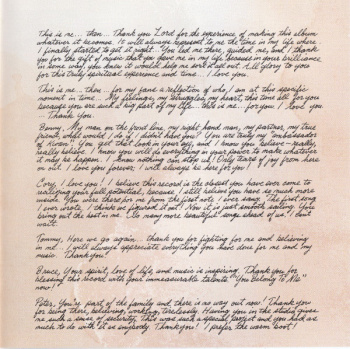 This is me... then... Thank you Lord for the experience of making this album
whatever it becomes. It will always represent to me the time in my life where
I finally started to get it right. You led me there, guided me, and I thank
you for the gift of music that you gave me in my life because in your brilliance
in some way you knew it would help me work it all out. All glory to you
for this truly spiritual experience and time... I love you.
This is me... then... for my fans a reflection of who I am at this specific
moment in time... My feelings, my struggles, my heart, this time all for you
because you are such a big part of my life... this is me... for you I love you
... Thank you.
Benny, My man on the front line, my right hand man, my partner, my true
friend, what would I do if I didn't have you? You are truly my "ambassador
of kwon". You get that look in your eye, and I know you believe - really,
really believe. I know you will do everything in your power to make whatever
it may be happen. I know nothing can stop us! Only tears of joy from here
on out. I love you forever. I will always be here for you!
Cory, I love you! I believe this record is the closest you have ever come to
realizing your full potential, because I still believe you have so much more
inside. You were there for me from the first note I ever sang. The first song
I ever wrote. I think we figured it out! Now it is just smooth sailing. You
bring out the best in me. So many more beautiful songs ahead of us. I can't
wait.
Tommy, Here we go again... thank you for fighting for me and believing
in me! I will always appreciate everything you have done for me and my
music. Thank you!
Bruce, Your spirit, love of life, and music is inspiring. Thank you for
blessing this record with your immeasurable talents. "You Belong To Me"
wow!
Peter, You're part of the family and there is no way out now! Thank you
for being there, believing, working, tirelessly. Having you in the studio gives
me such a sense of security. This was such a special project and you had as
much to do with it as anybody. Thank you! I prefer the warm boot!